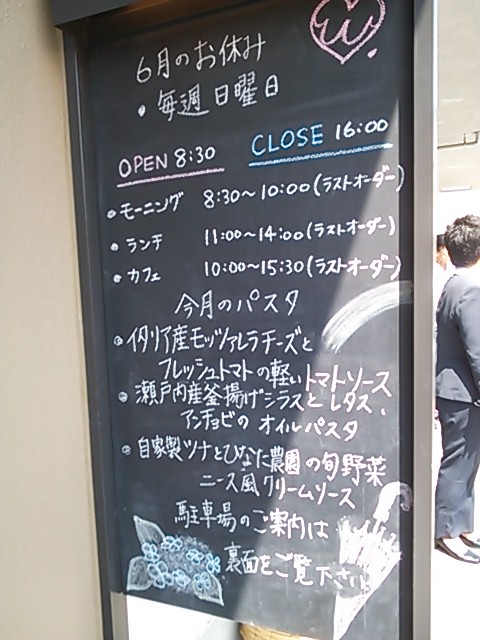 6月のお休み
・毎週日曜日
OPEN 8:30 CLOSE 16:00
・モーニング 8:30〜10:00(ラストオーダー)
・ランチ 11:00〜14:00(ラストオーダー)
・カフェ 10:00〜15:30(ラストオーダー)
今月のパスタ
・イタリア産モッツァレラチーズと
フレッシュトマトの軽いトマトソース
・瀬戸内産釜揚げシラスとレタス、
アンチョビのオイルパスタ
・自家製ツナとひなた農園の旬野菜
ニース風クリームソース
駐車場のご案内は
裏面をご覧下さい。